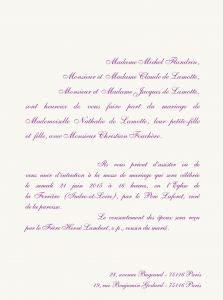 Madame Michel Flandrin,
Monsieur et Madame Claude de Lamotte,
Monsieur et Madame Jacques de Lamotte,
sont heureux de vous faire part du mariage de
Mademoiselle Nathalie de Lamotte, leur petite-fille
et fille, avec Monsieur Christian Fouchère.
Ils vous prient d'assister ou de
vous unir d'intention à la messe de mariage qui sera célébrée
le samedi 21 juin 2015 à 16 heures, en l'Église de
la Ferrière (Indre-et-Loire), par le Père Lafont, curé
de la paroisse.
Le consentement des époux sera reçu
par le Frère Hervé Lambert, o.p., cousin du marié.
24, avenue Bugeaud - 75116 Paris
12, rue Benjamin Godard - 75116 Paris